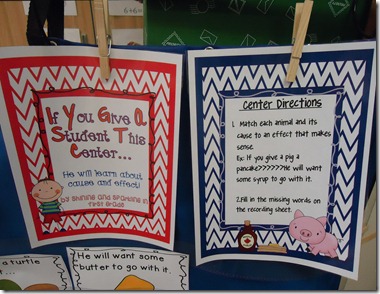 If You Give A
Student This
Center...
He will learn about
cause and effect!
by Shining and Sparkling in
First Grade
Center Directions
1. Match each animal and its
cause to an effect that makes
sense.
Ex: If you give a pig a
pancake??????He will want
some syrup to go with it.
2.Fill in the missing words on
the recording sheet.
a turtle
He will want some
butter to go with it.